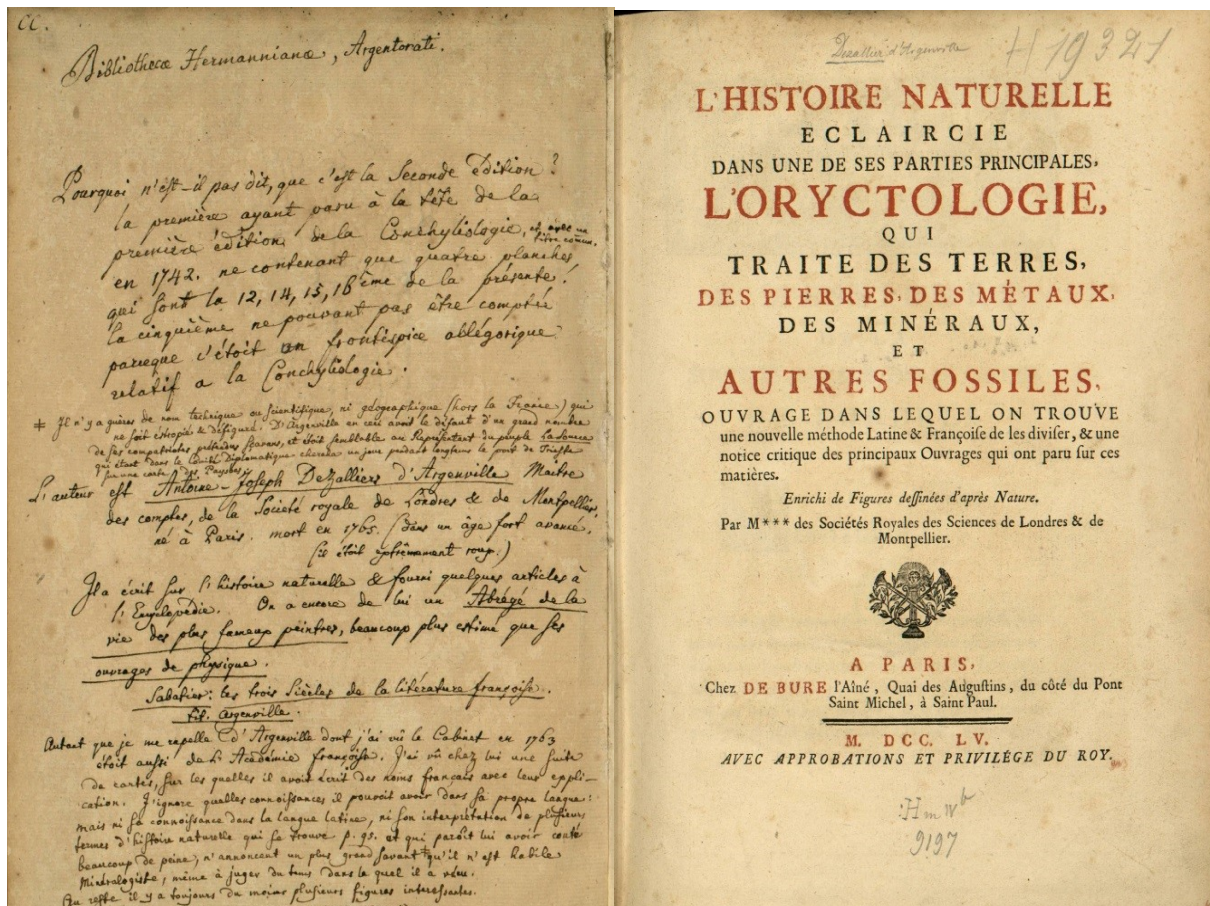 CC.
Bibliothecæ Hermannianæ, Argentorati.
Pourquoi n'est-il pas dit, que c'est la Seconde Édition?
la première ayant paru à la tête de la
première édition de la Conchyliologie, et avec un
titre commun.
en 1742. ne contenant que quatre planches,
qui sont la 12, 14, 15, 16ème de la présente!
la cinquième ne pouvant pas être comptée
parceque c'étoit un frontispice allégorique
relatif a la Conchyliologie.
Il n'y a guères de nom technique ou scientifique, ni géographique (hors la France) qui
ne soit estropié & défiguré. D'Argenville en ceci avoit le défaut d'un grand nombre
de ses compatriotes prétendus savans, et étoit semblable au Représentant du peuple La Source
qui étant dans le Comité Diplomatique chercha un jour pendant longtems le port de Trieste
sur une carte des Paysbas.
L'auteur est Antoine-Joseph Dezalliers d'Argenville Maitre
des comptes, de la Societé royale de Londres & de Montpellier,
né à Paris. mort en 1765. (dans un âge fort avancé,
(il étoit extrêmement roup.)
Il a écrit sur l'histoire naturelle & fourni quelques articles à
l'Encyclopédie. On a encore de lui un Abrégé de la
vie des plus fameux peintres, beaucoup plus estimé que ses
ouvrages de physique.
Sabatier: les trois Siècles de la litérature françoise.
tit. Argenville.
Autant que je me rapelle d'Argenville dont j'ai vû le Cabinet en 1763
étoit aussi de l'Académie françoise. J'ai vû chez lui une suite
de cartes, sur les quelles il avoit écrit des noms français avec leur expli-
cation. J'ignore quelles connoissances il pouvoit avoir dans sa propre langue:
mais ni sa connoissance dans la langue latine, ni son interprétation de plusieurs
termes d'histoire naturelle qui se trouve p. 95. et qui paroît lui avoir couté
beaucoup de peine, n'annoncent un plus grand savant qu'il n'est habile
Minéralogiste, même à juger du tems dans le quel il a vécu.
Au reste il y a toujours du moins plusieurs figures interessantes.
Dezallier d'Argenville
H 19321
L'HISTOIRE NATURELLE
ECLAIRCIE
DANS UNE DE SES PARTIES PRINCIPALES,
L'ORYCTOLOGIE,
QUI
TRAITE DES TERRES,
DES PIERRES, DES MÉTAUX,
DES MINÉRAUX,
ET
AUTRES FOSSILES,
OUVRAGE DANS LEQUEL ON TROUVE
une nouvelle méthode Latine & Françoise de les diviser, & une
notice critique des principaux Ouvrages qui ont paru sur ces
matières.
Enrichi de Figures dessinées d'après Nature.
Par M*** des Sociétés Royales des Sciences de Londres & de
Montpellier.
A PARIS,
Chez DE BURE l'Aîné, Quai des Augustins, du côté du Pont
Saint Michel, à Saint Paul.
M. DCC. LV.
AVEC APPROBATIONS ET PRIVILÉGE DU ROY.
Hm IV b
9197